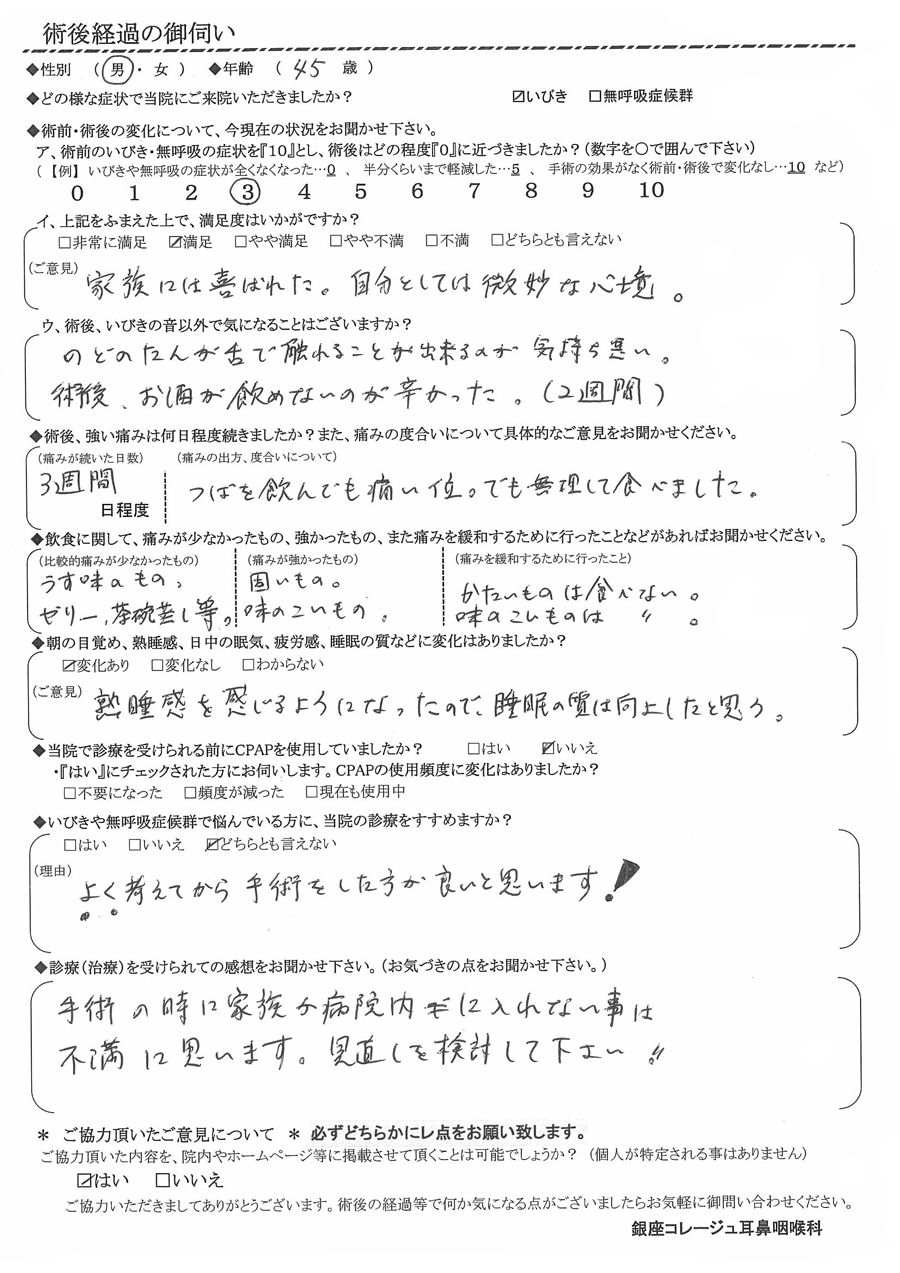 術後経過の御伺い
◆性別 （ 男 ・ 女 ） ◆年齢 （ 45 歳 ）
◆どの様な症状で当院にご来院いただきましたか？ ☑いびき □無呼吸症候群
◆術前・術後の変化について、今現在の状況をお聞かせ下さい。
ア、術前のいびき・無呼吸の症状を『10』とし、術後はどの程度『0』に近づきましたか？（数字を○で囲んで下さい）
（【例】 いびきや無呼吸の症状が全くなくなった…0 、 半分くらいまで軽減した…5 、 手術の効果がなく術前・術後で変化なし…10 など）
0 1 2 3 4 5 6 7 8 9 10
イ、上記をふまえた上で、満足度はいかがですか？
□非常に満足 ☑満足 □やや満足 □やや不満 □不満 □どちらとも言えない
（ご意見） 家族には喜ばれた。自分としては微妙な心境。
ウ、術後、いびきの音以外で気になることはございますか？
のどのたんが舌で触れることが出来るのが気持ち悪い。
術後、お酒が飲めないのが辛かった。（2週間）
◆術後、強い痛みは何日程度続きましたか？また、痛みの度合いについて具体的なご意見をお聞かせください。
（痛みが続いた日数） （痛みの出方、度合いについて）
3週間 つばを飲んでも痛い位。でも無理して食べました。
日程度
◆飲食に関して、痛みが少なかったもの、強かったもの、また痛みを緩和するために行ったことなどがあればお聞かせください。
（比較的痛みが少なかったもの） （痛みが強かったもの） （痛みを緩和するために行ったこと）
うす味のもの、 固いもの。 かたいものは食べない。
ゼリー、茶碗蒸し等。 味のこいもの。 味のこいものは 〃 。
◆朝の目覚め、熟睡感、日中の眠気、疲労感、睡眠の質などに変化はありましたか？
☑変化あり □変化なし □わからない
（ご意見） 熟睡感を感じるようになったので、睡眠の質は向上したと思う。
◆当院で診療を受けられる前にCPAPを使用していましたか？ □はい ☑いいえ
・『はい』にチェックされた方にお伺いします。CPAPの使用頻度に変化はありましたか？
□不要になった □頻度が減った □現在も使用中
◆いびきや無呼吸症候群で悩んでいる方に、当院の診療をすすめますか？
□はい □いいえ ☑どちらとも言えない
（理由） よく考えてから手術をした方が良いと思います！
◆診療（治療）を受けられての感想をお聞かせ下さい。（お気づきの点をお聞かせ下さい。）
手術の時に家族が病院内に入れない事は
不満に思います。見直しを検討して下さい!!
＊ ご協力頂いたご意見について ＊ 必ずどちらかにレ点をお願い致します。
ご協力頂いた内容を、院内やホームページ等に掲載させて頂くことは可能でしょうか？（個人が特定される事はありません）
☑はい □いいえ
ご協力いただきましてありがとうございます。術後の経過等で何か気になる点がございましたらお気軽に御問い合わせください。
銀座コレージュ耳鼻咽喉科